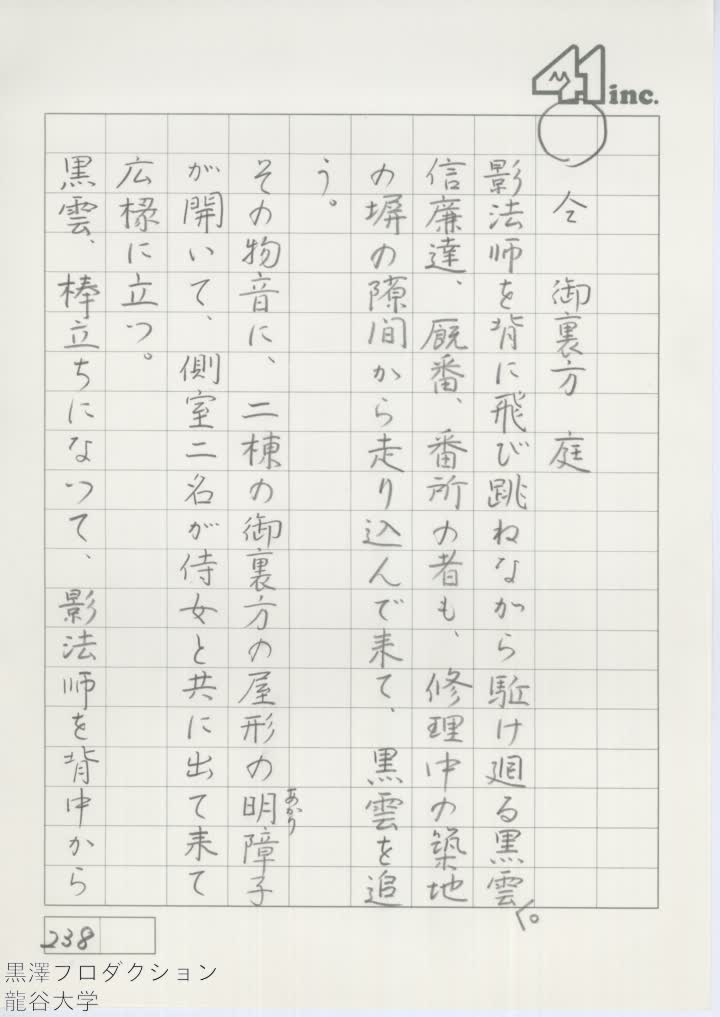 41 inc.
〃 仝 御裏方 庭
影法師を背に飛び跳ねながら駈け廻る黒雲。
信廉達、厩番、番所の者も、修理中の築地
の塀の隙間から走り込んで来て、黒雲を追
う。
その物音に、二棟の御裏方の屋形の明障子
あかり
が開いて、側室二名が侍女と共に出て来て
広椽に立つ。
黒雲、棒立ちになって、影法師を背中から
238
黒澤プロダクション
龍谷大学